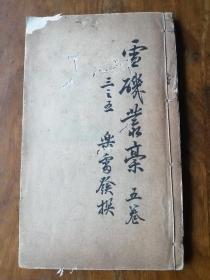 雪磯叢藁 五卷
三之五 樂雷發撰